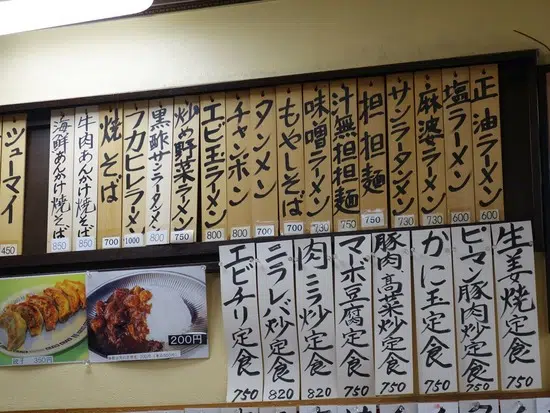 正油ラーメン 600
塩ラーメン 600
麻婆ラーメン 730
サンラータンメン 730
担担麺 750
汁無担担麺 750
味噌ラーメン 730
もやしそば 700
タンメン 700
チャンポン 800
エビ玉ラーメン 800
炒め野菜ラーメン 750
黒酢サンラータンメン 800
フカヒレラーメン 1000
焼そば 700
牛肉あんかけ焼そば 850
海鮮あんかけ焼そば 850
シューマイ 450
生姜焼定食 750
ピーマン豚肉炒定食 750
かに玉定食 750
豚肉高菜炒定食 750
マーボ豆腐定食 750
肉ニラ炒定食 820
ニラレバ炒定食 820
エビチリ定食 750
200円
餃子 350円